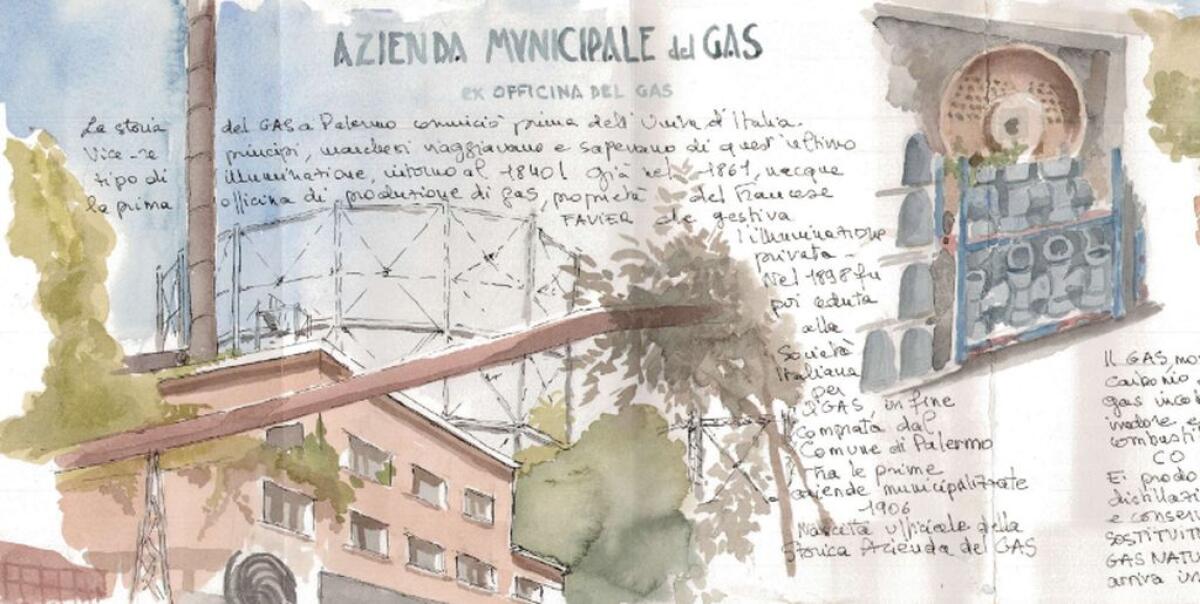 AZIENDA MVNICIPALE del GAS
ex OFFICINA DEL GAS
La storia del GAS a Palermo cominciò prima dell'Unità d'Italia.
Vice-re principi, marchesi viaggiavano e sapevano di quest'ultimo
tipo di illuminazione, intorno al 1840! già nel 1861, nacque
la prima officina di produzione di gas, proprietà del Francese
FAVIER che gestiva
l'illuminazione
privata.
Nel 1898 fu
poi ceduta
alla
Società
Italiana
per
il GAS, in fine
comprata dal
Comune di Palermo
Tra le prime
aziende municipalizzate
1906
Nascita ufficiale della
Storica Azienda del GAS
Il GAS
carbonio
gas
inodore e
combusti
CO
Ei prodo
distillazi
e consen
SOSTITUIT
GAS NATU
arriva in